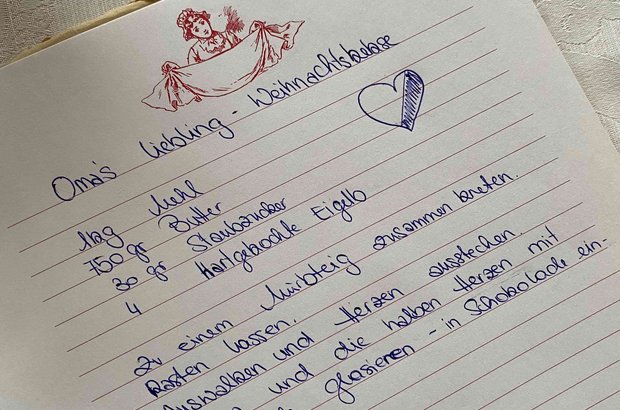 Oma's Liebling - Weihnachtskekse
1kg Mehl
750 gr Butter
30 gr Staubzucker
4 Hartgekochte Eigelb
Zu einem Mürbteig zusammen kneten.
Rasten lassen.
Auswalken und Herzen ausstechen.
und die halben Herzen mit
glasieren - in Schokolade ein-